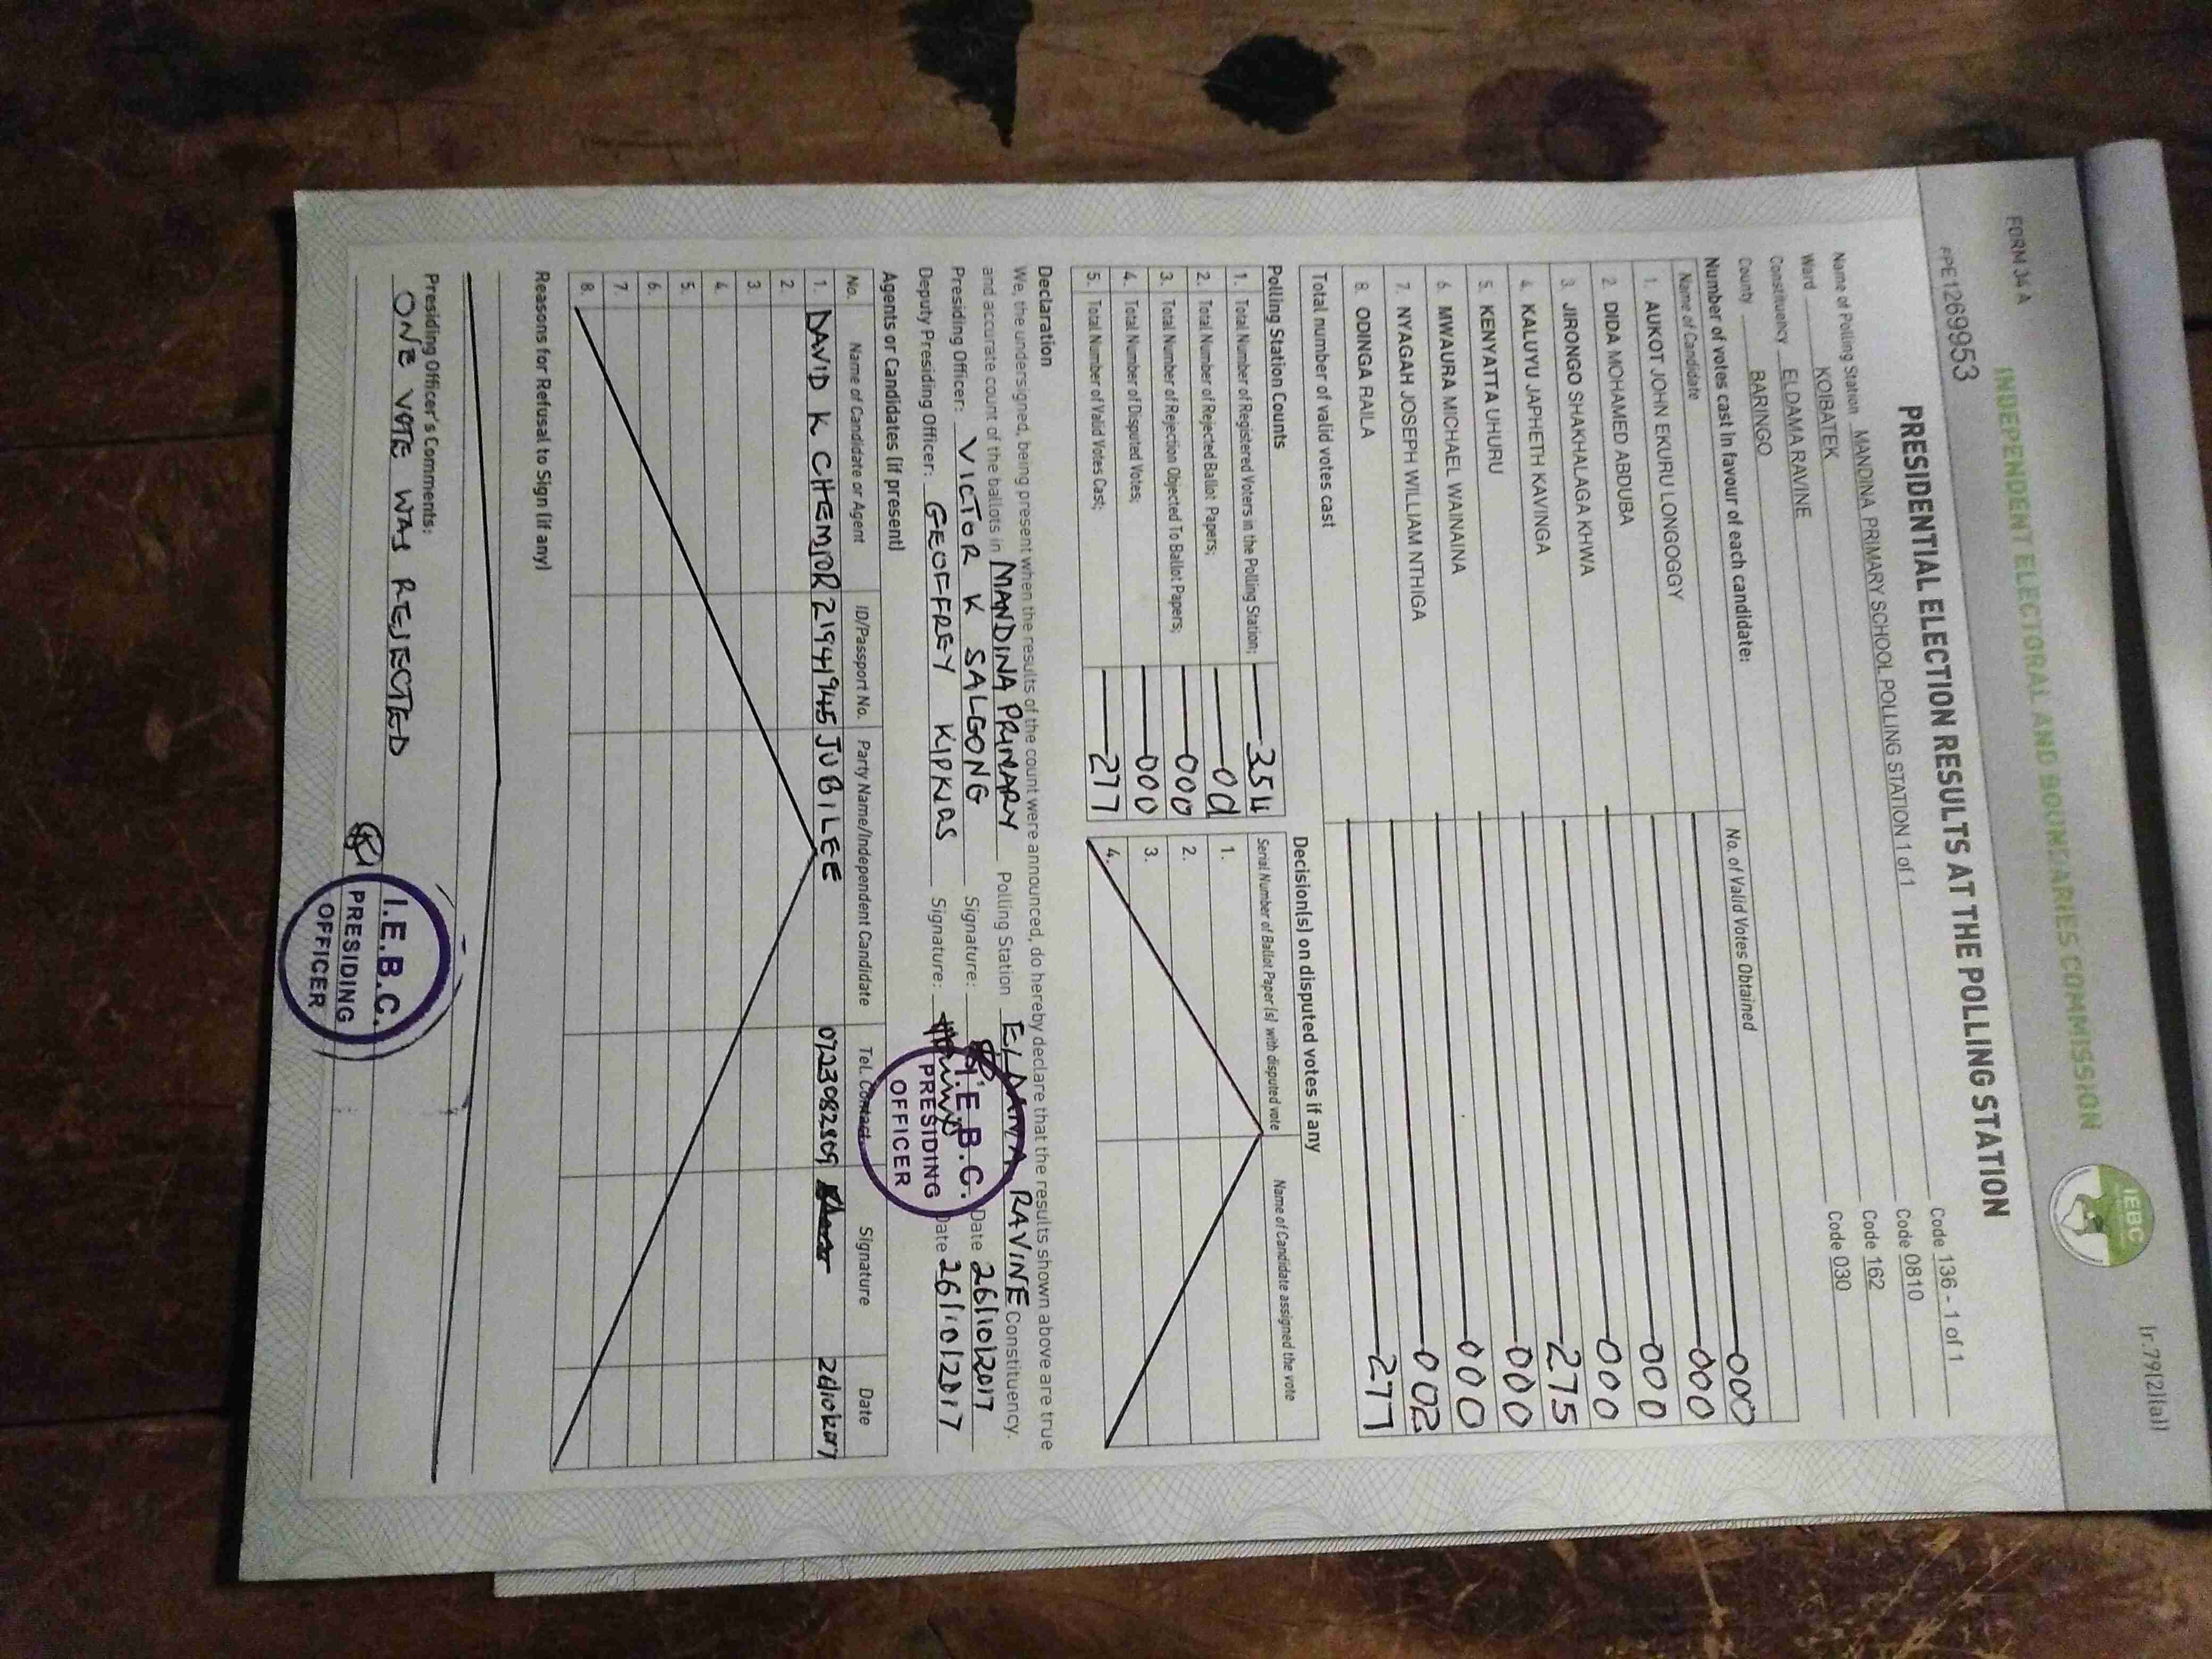 FORM 34 A
[r.79(2)(a)]
INDEPENDENT ELECTORAL AND BOUNDARIES COMMISSION
IEBC
PPE1269953
PRESIDENTIAL ELECTION RESULTS AT THE POLLING STATION
Name of Polling Station MANDINA PRIMARY SCHOOL POLLING STATION 1 of 1 Code 136 - 1 of 1
Ward KOIBATEK Code 0810
Constituency ELDAMA RAVINE Code 162
County BARINGO Code 030
Number of votes cast in favour of each candidate:
Name of Candidate No. of Valid Votes Obtained
1. AUKOT JOHN EKURU LONGOGGY 000
2. DIDA MOHAMED ABDUBA 000
3. JIRONGO SHAKHALAGA KHWA 000
4. KALUYU JAPHETH KAVINGA 000
5. KENYATTA UHURU 275
6. MWAURA MICHAEL WAINAINA 000
7. NYAGAH JOSEPH WILLIAM NTHIGA 000
8. ODINGA RAILA 002
Total number of valid votes cast 277
Polling Station Counts
1. Total Number of Registered Voters in the Polling Station; 354
2. Total Number of Rejected Ballot Papers;
3. Total Number of Rejection Objected To Ballot Papers; 000
4. Total Number of Disputed Votes; 000
5. Total Number of Valid Votes Cast; 277
Decision(s) on disputed votes if any
Serial Number of Ballot Paper (s) with disputed vote Name of Candidate assigned the vote
1.
2.
3.
4.
Declaration
We, the undersigned, being present when the results of the count were announced, do hereby declare that the results shown above are true
and accurate count of the ballots in MANDINA PRIMARY Polling Station ELDAMA RAVINE Constituency.
Presiding Officer: VICTOR K SALGONG Signature: Date 26/10/2017
Deputy Presiding Officer: GEOFFREY KIPKIAS Signature: Date 26/10/2017
I.E.B.C.
PRESIDING
OFFICER
Agents or Candidates (if present)
No. Name of Candidate or Agent ID/Passport No. Party Name/Independent Candidate Tel. Contact Signature Date
1. DAVID K CHEMJOR 21941945 JUBILEE 0723082509 26/10/2017
2.
3.
4.
5.
6.
7.
8.
Reasons for Refusal to Sign (if any)
Presiding Officer's Comments:
ONE VOTE WAS REJECTED
I.E.B.C.
PRESIDING
OFFICER